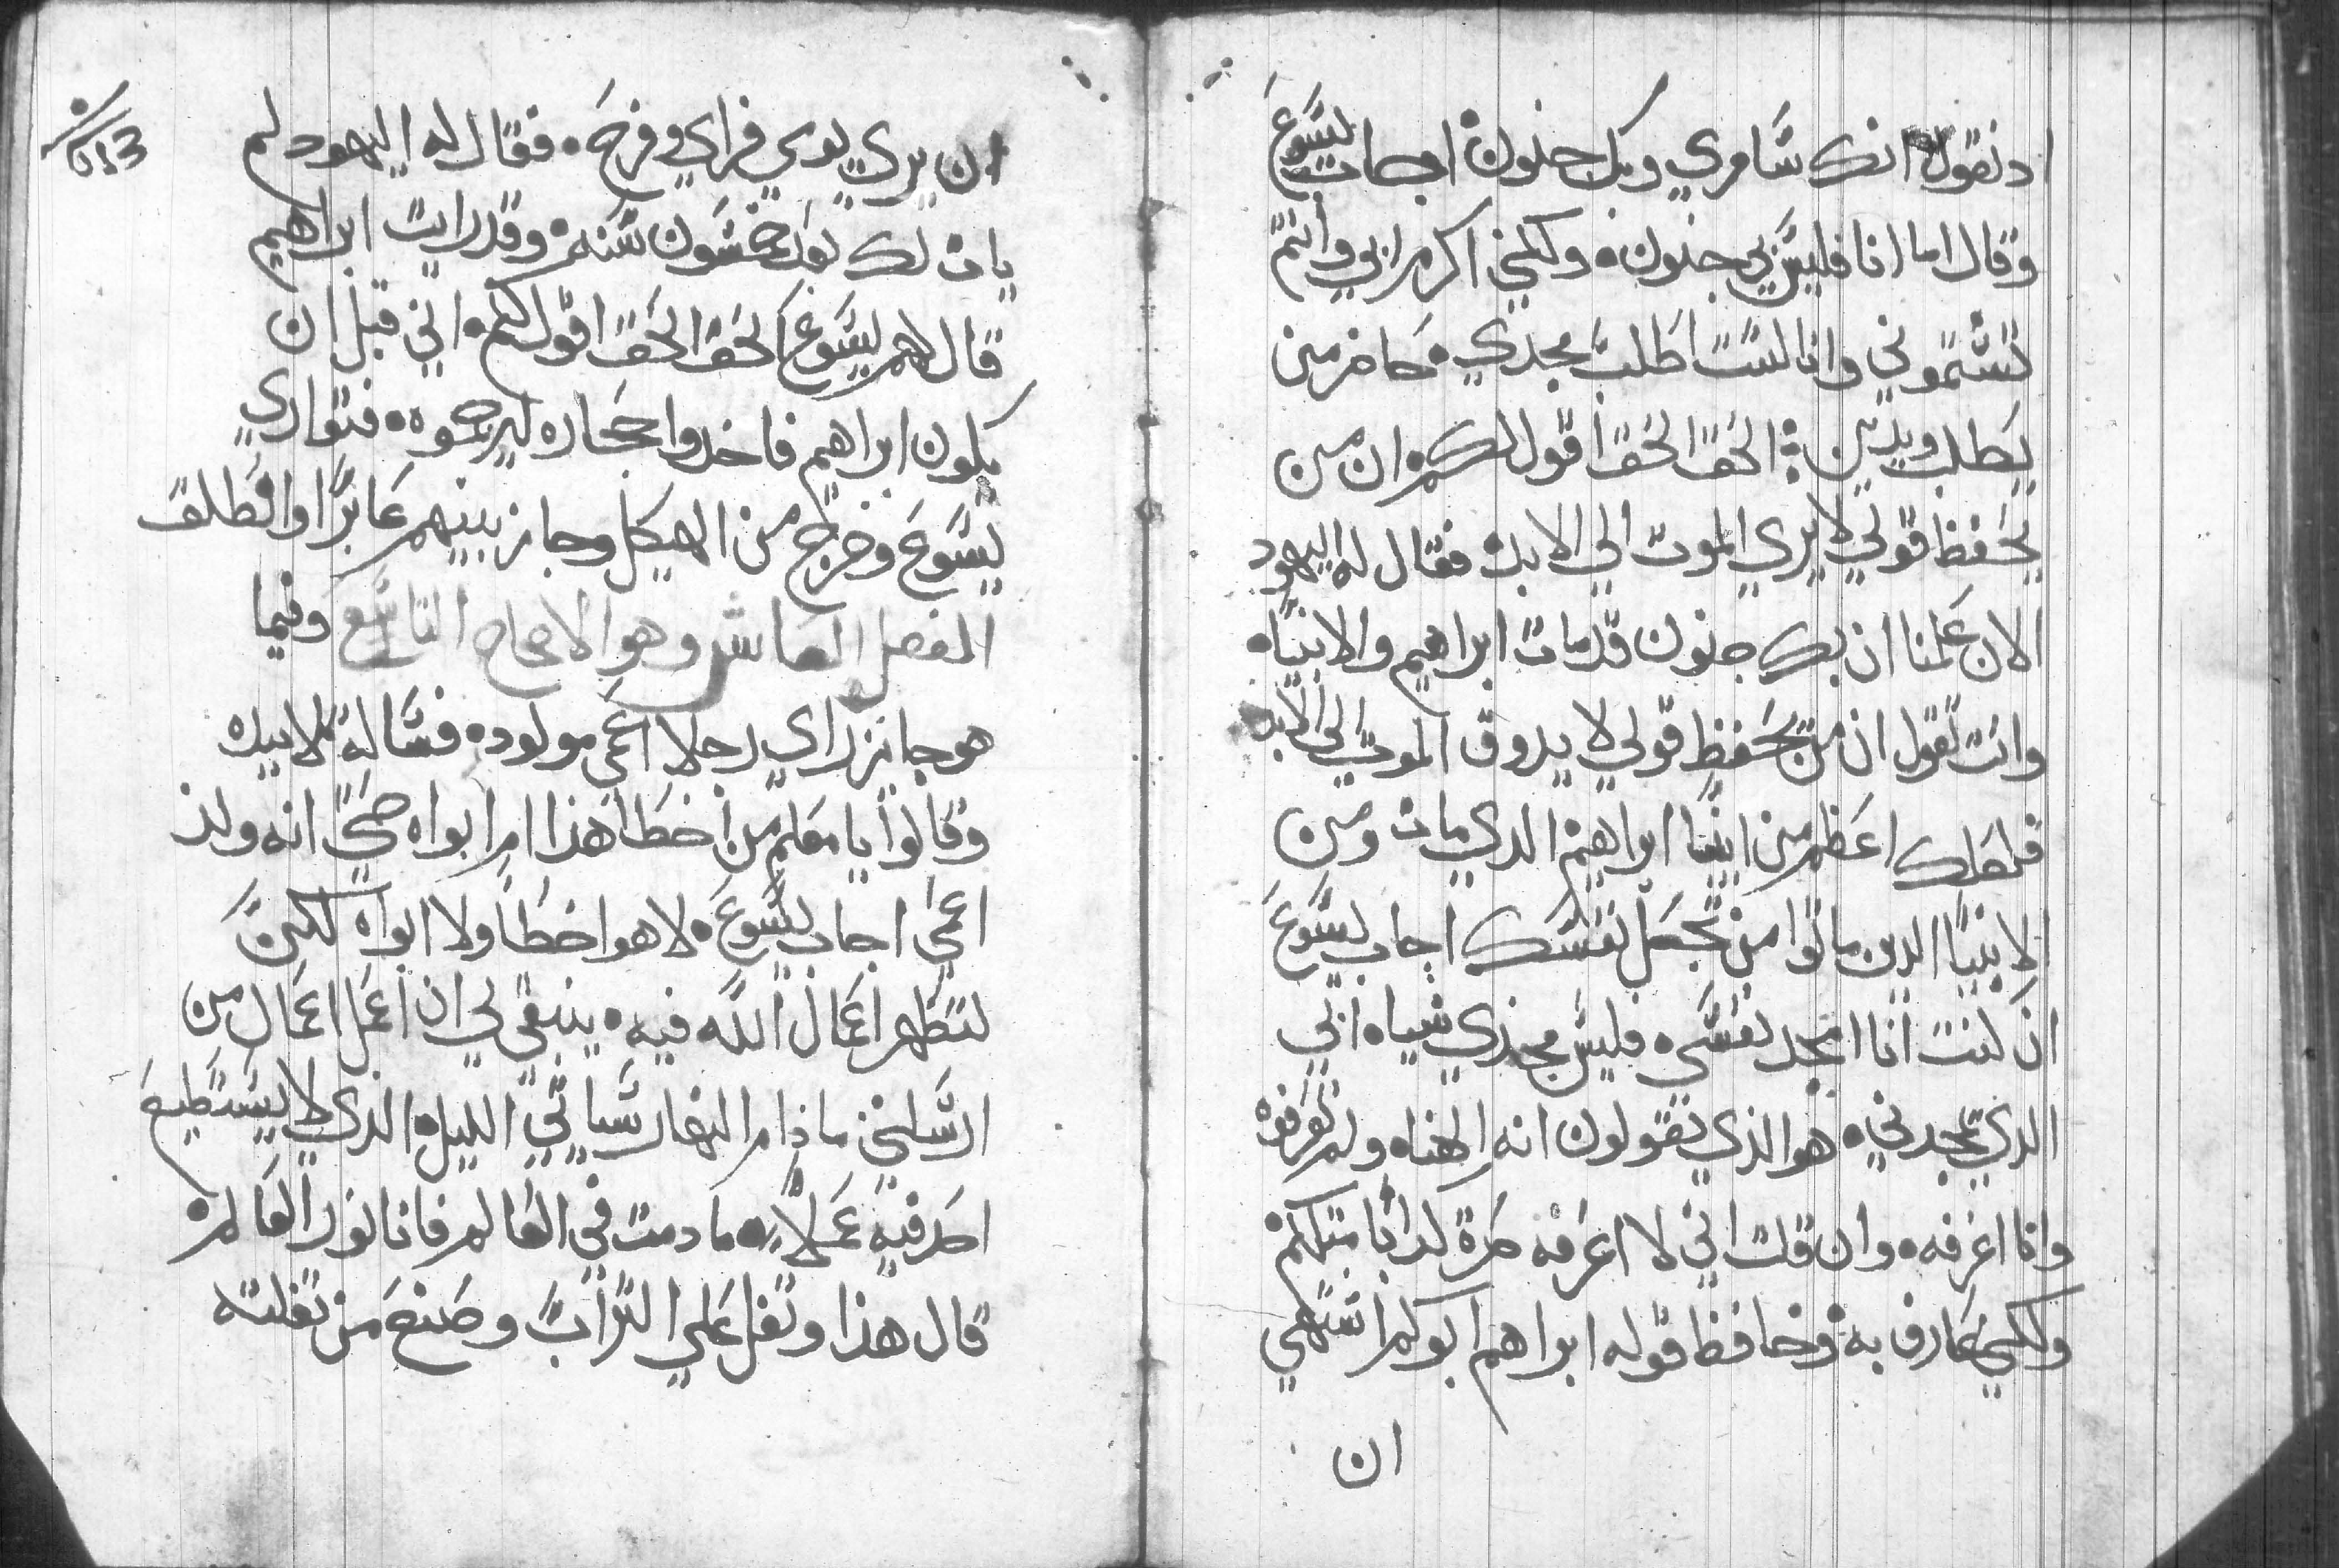 اد نقول انك سَّامري وبك جنون اجاب يسَّوعَ
وقال اما انا فليسَّ بي جنون ولكنني اكرم ابي وانتم
تشَّتموني وانا لسَّت اطلب مجدي حاضر من
يَطلب ويدين الحَق الحَق اقول لكم ان من
يحَفظ قولي لا يري الموت الي الابد فقال له اليهود
الان عَلمنا ان بك جنون قد مات ابراهيم والانبياه
وانت تقول ان من يحَفظ قولي لا يدوق الموت الي الابد
فلعلك اعَظم من ابينا ابراهيم الدي مات ومن
الانبيا الدين ماتوا من تجعَل نفسَّك اجاب يسَّوعَ
ان كنت انا امجد نفسَّي فليسَّ مجدي شياه ابي
الدي يمجدني هو الذي تقولون انه الهناه ولم تعَرفوه
وانا اعَرفه وان قلت اني لا اعَرفه صَرة كدابا مثلكم
ولكني عَارف به وحَافظ قوله ابراهيم ابوكم اشتهي
ان
ان يري يومي فراي وفرحَ فقال له اليهود لم
يات لك بعَد خمسَّون سَّنة وقد رايت ابراهيم
قال لهم يسَّوعَ الحَق الحَق اقول لكم اني قبل ان
يكون ابراهيم فاخدوا حجَاره ليرجموه فتواري
يسَّوعَ وخرج من الهيكل وجاز بينهم عَابرًا وانطلق
الفصل العاشر وهو الاصحاح التاسَّع وفيما
هو جايز راي رجلا اعَمي مولود فسَّاله تلاميده
وقالوا يا معَلم من اخطَا هذا ام ابواه حَتي انه ولد
اعَمي اجاب يسَّوعَ لا هو اخطَا ولا ابواه لكن
لتظهر اعَمال اللَّه فيه ينبغي لي ان اعَمل اعَمال من
ارسَّلني ما دام النهار سَّياتي الليل الذي لا يسَّتطيعَ
احَد فيه عَملاً ما دمت في العَالم فانا نور العَالم
قال هذا وتفل عَلي التراب وصَنعَ من تفلته